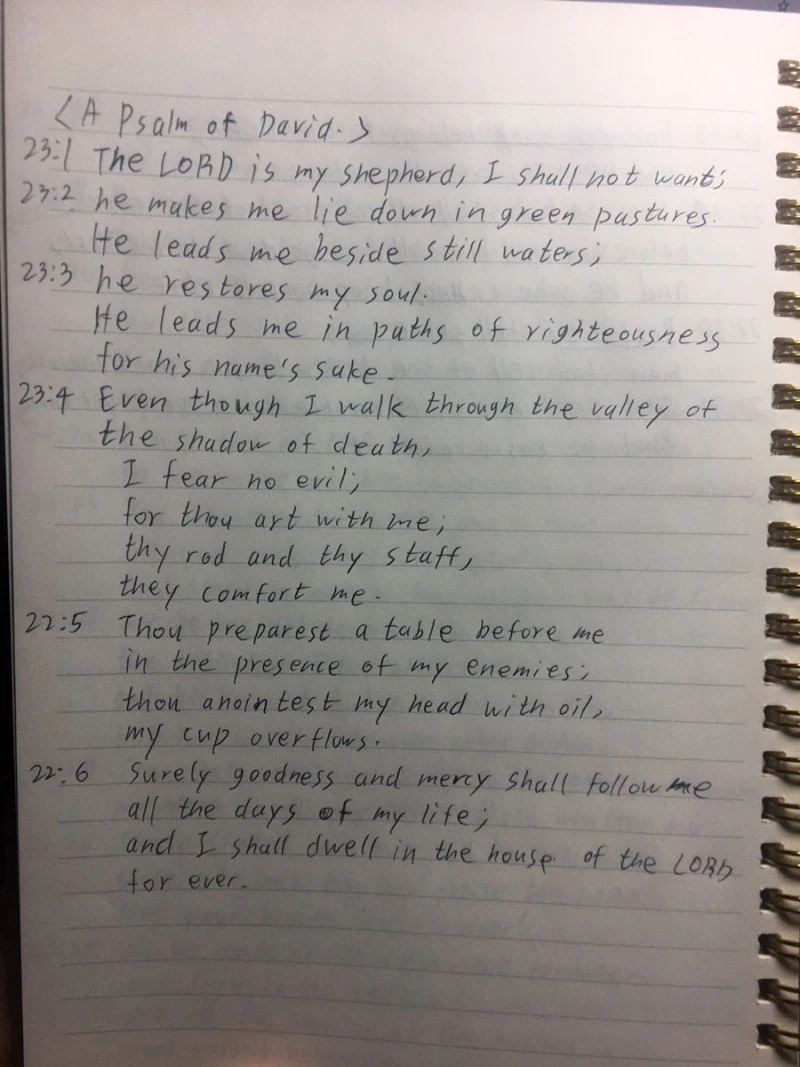 <A Psalm of David.>
23:1 The LORD is my shepherd, I shall not want;
23:2 he makes me lie down in green pastures.
He leads me beside still waters;
23:3 he restores my soul.
He leads me in paths of righteousness
for his name's sake.
23:4 Even though I walk through the valley of
the shadow of death,
I fear no evil;
for thou art with me;
thy rod and thy staff,
they comfort me.
22:5 Thou preparest a table before me
in the presence of my enemies;
thou anointest my head with oil,
my cup overflows.
22:6 Surely goodness and mercy shall follow me
all the days of my life;
and I shall dwell in the house of the LORD
for ever.